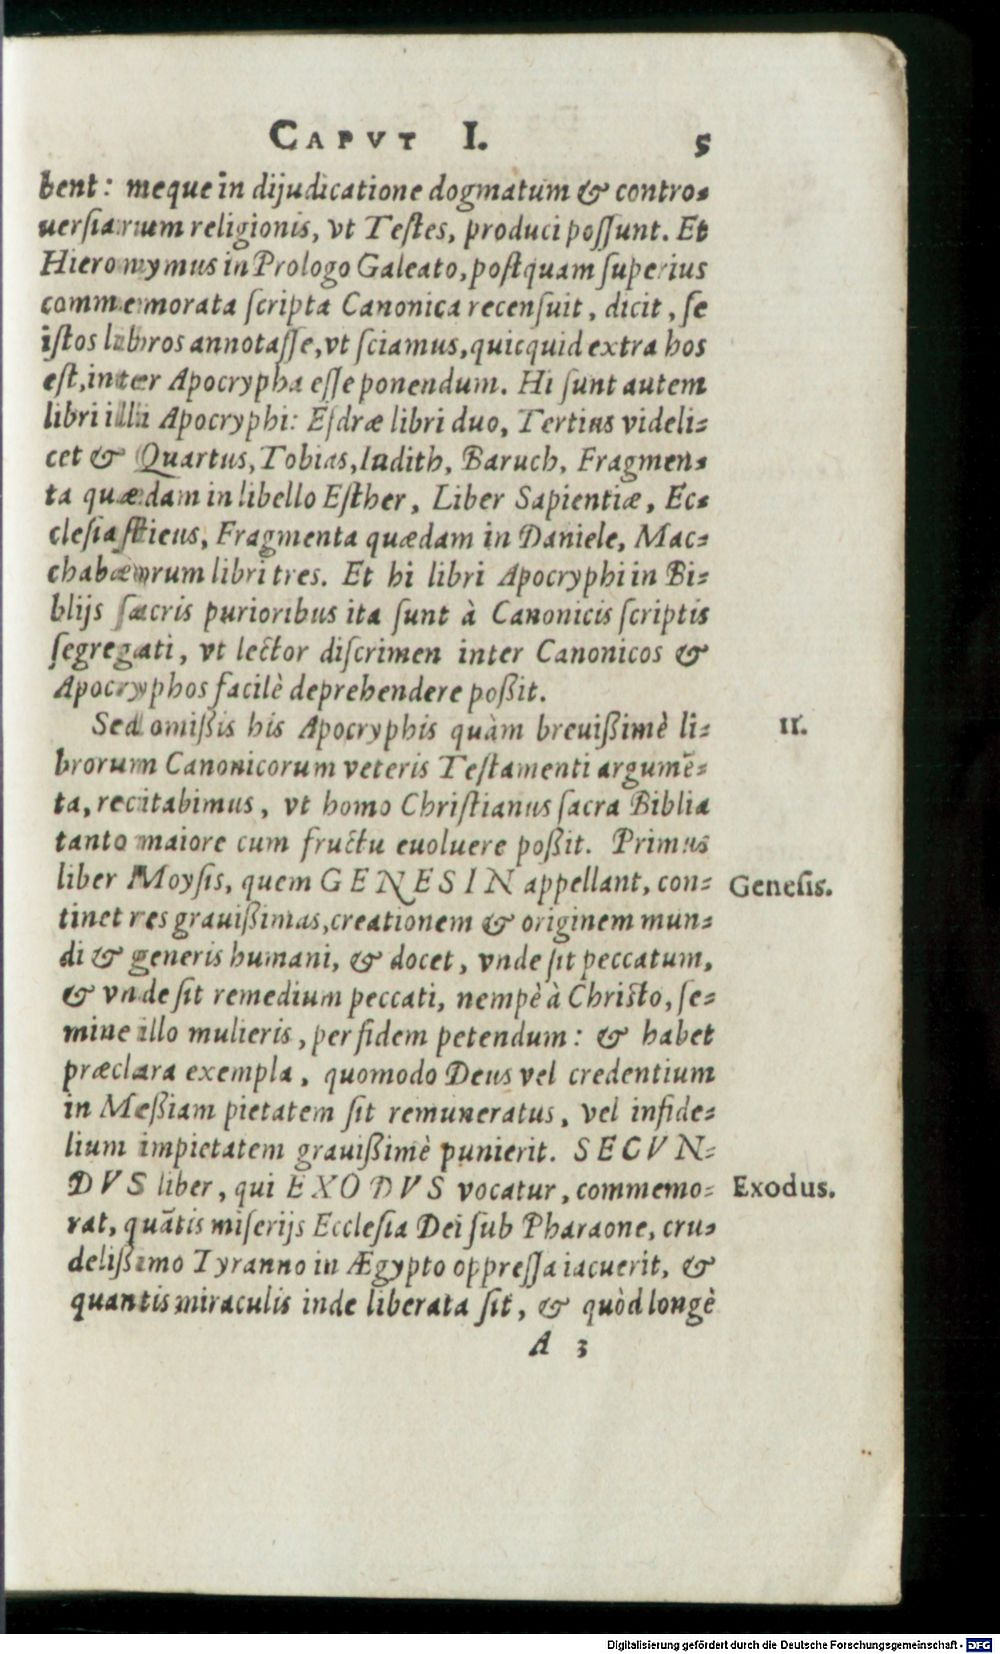 CAPVT I. 5
bent: meque in dijudicatione dogmatum & contro-
uersiarum religionis, vt Testes, produci possunt. Et
Hieronymus in Prologo Galeato, postquam superius
commemorata scripta Canonica recensuit, dicit, se
istos libros annotasse, vt sciamus, quicquid extra hos
est, inter Apocrypha esse ponendum. Hi sunt autem
libri illi Apocryphi: Esdræ libri duo, Tertius videli-
cet & Quartus, Tobias, Iudith, Baruch, Fragmen-
ta quædam in libello Esther, Liber Sapientiæ, Ec-
clesiasticus, Fragmenta quædam in Daniele, Mac-
chabæorum libri tres. Et hi libri Apocryphi in Bi-
blijs sacris purioribus ita sunt à Canonicis scriptis
segregati, vt lector discrimen inter Canonicos &
Apocryphos facilè deprehendere poßit.
Sed omißis his Apocryphis quàm breuißimè li- II.
brorum Canonicorum veteris Testamenti argumẽ-
ta, recitabimus, vt homo Christianus sacra Biblia
tanto maiore cum fructu euoluere poßit. Primus
liber Moysis, quem GENESIN appellant, con- Genesis.
tinet res grauißimas, creationem & originem mun-
di & generis humani, & docet, vnde sit peccatum,
& vnde sit remedium peccati, nempè à Christo, se-
mine illo mulieris, per fidem petendum: & habet
præclara exempla, quomodo Deus vel credentium
in Meßiam pietatem sit remuneratus, vel infide-
lium impietatem grauißimè punierit. SECVN-
DVS liber, qui EXODVS vocatur, commemo- Exodus.
rat, quãtis miserijs Ecclesia Dei sub Pharaone, cru-
delißimo Tyranno in Ægypto oppressa iacuerit, &
quantis miraculis inde liberata sit, & quòd longè
A 3
Digitalisierung gefördert durch die Deutsche Forschungsgemeinschaft - DFG